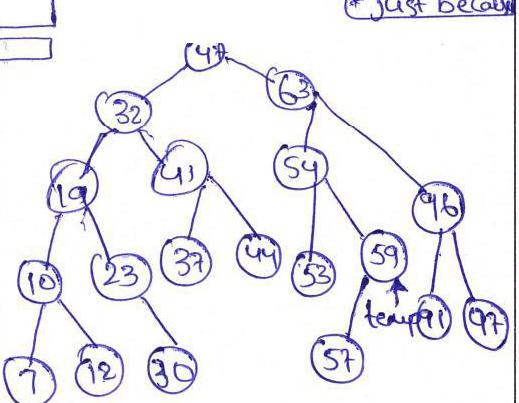 * Just becau
47
32 63
19 41 54 96
10 23 37 44 53 59
temp 91 97
7 12 30 57